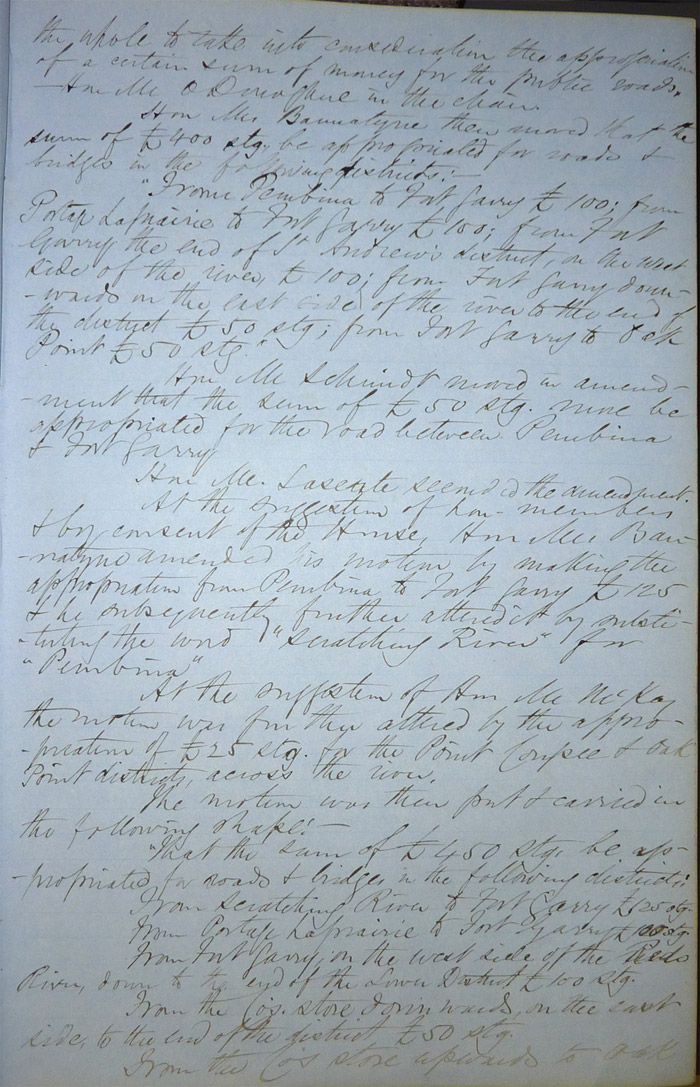 the whole to take into consideration the appropriation
of a certain sum of money for the public roads,
—Hon Mr O'Donoghue in the chair.
Hon Mr. Bannatyne then moved that the
sum of £400 stg. be appropriated for roads &
bridges in the following districts:—
"From Pembina to Fort Garry £100; from
Portage Laprairie to Fort Garry £100; from Fort
Garry the end of St Andrew's district, on the west
side of the river, £100; from Fort Garry down-
-wards on the east side of the river to the end of
the district £50 stg; from Fort Garry to Oak
Point £50 stg."
Hon Mr Schmidt moved in amend-
-ment that the sum of £50 stg. more be
appropriated for the road between Pembina
& Fort Garry
Hon Mr. Lascerte seconded the amendment.
At the suggestion of hon- members
& by consent of the House, Hon Mr Ban-
-natyne amended his motion by making the
appropriation from Pembina to Fort Garry £125
& he subsequently further altered it by substi-
-tuting the word "Scratching River" for
"Pembina"
At the suggestion of Hon Mr McKay
the motion was further altered by the appro-
-priation of £25 stg. for the Point Coupee & Oak
Point districts, across the river.
The motion was then put & carried in
the following shape:—
"That the sum of £450 stg. be ap-
-propriated for roads & bridges in the following districts:
From Scratching River to Fort Garry £125 stg.
From Portage Laprairie to Fort Garry £100 stg.
From Fort Garry, on the west side of the Red
River, down to the end of the Lower District £100 stg.
From the Co's. store downwards, on the east
side, to the end of the district £50 stg.
From the Co's store upwards to Oak